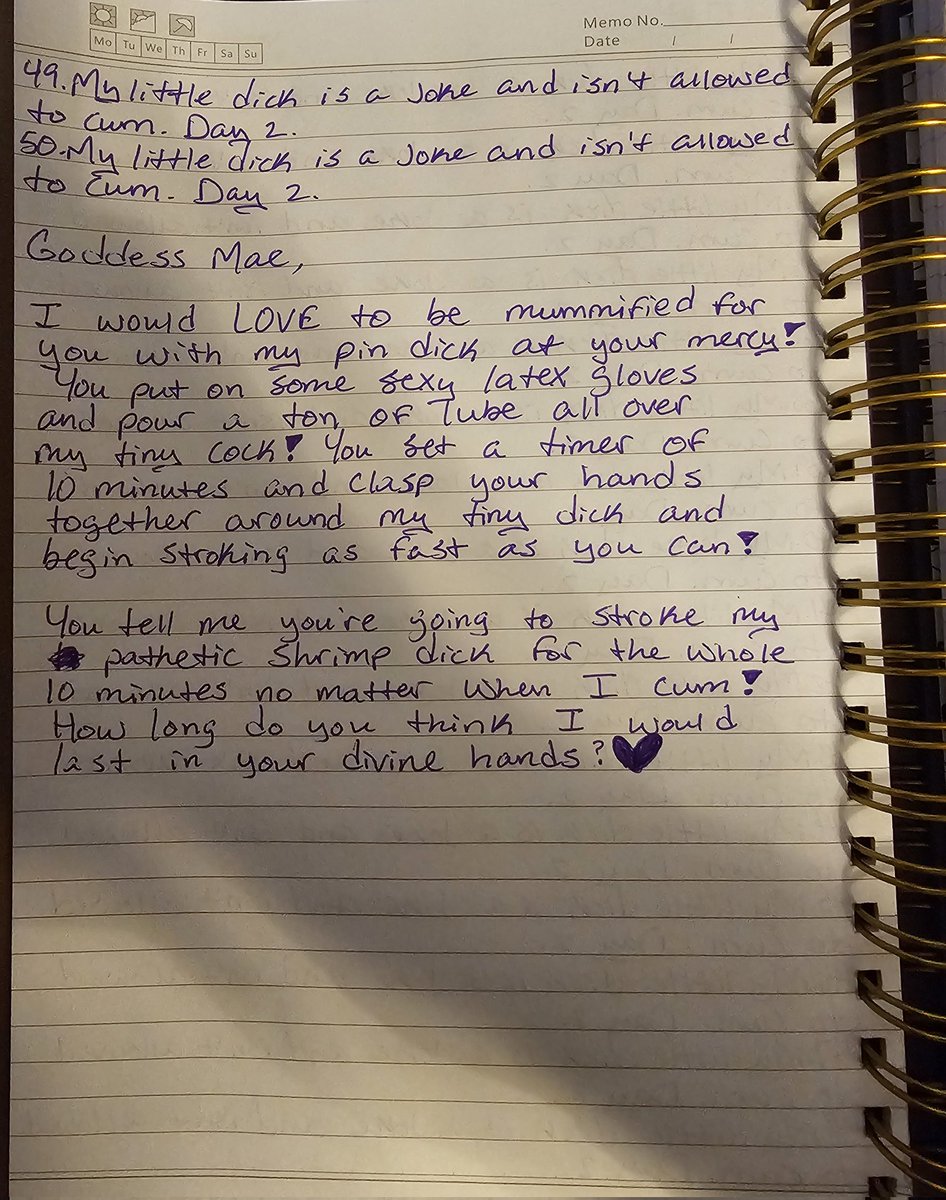 Mo Tu We Th Fr Sa Su
Memo No.
Date / /
49. My little dick is a Joke and isn't allowed
to cum. Day 2.
50. My little dick is a Joke and isn't allowed
to Cum. Day 2.
Goddess Mae,
I would LOVE to be mummified for
you with my pin dick at your mercy!
You put on some sexy latex gloves
and pour a ton of lube all over
my tiny cock! You set a timer of
10 minutes and clasp your hands
together around my tiny dick and
begin stroking as fast as you can!
You tell me you're going to stroke my
pathetic shrimp dick for the whole
10 minutes no matter when I cum!
How long do you think I would
last in your divine hands?